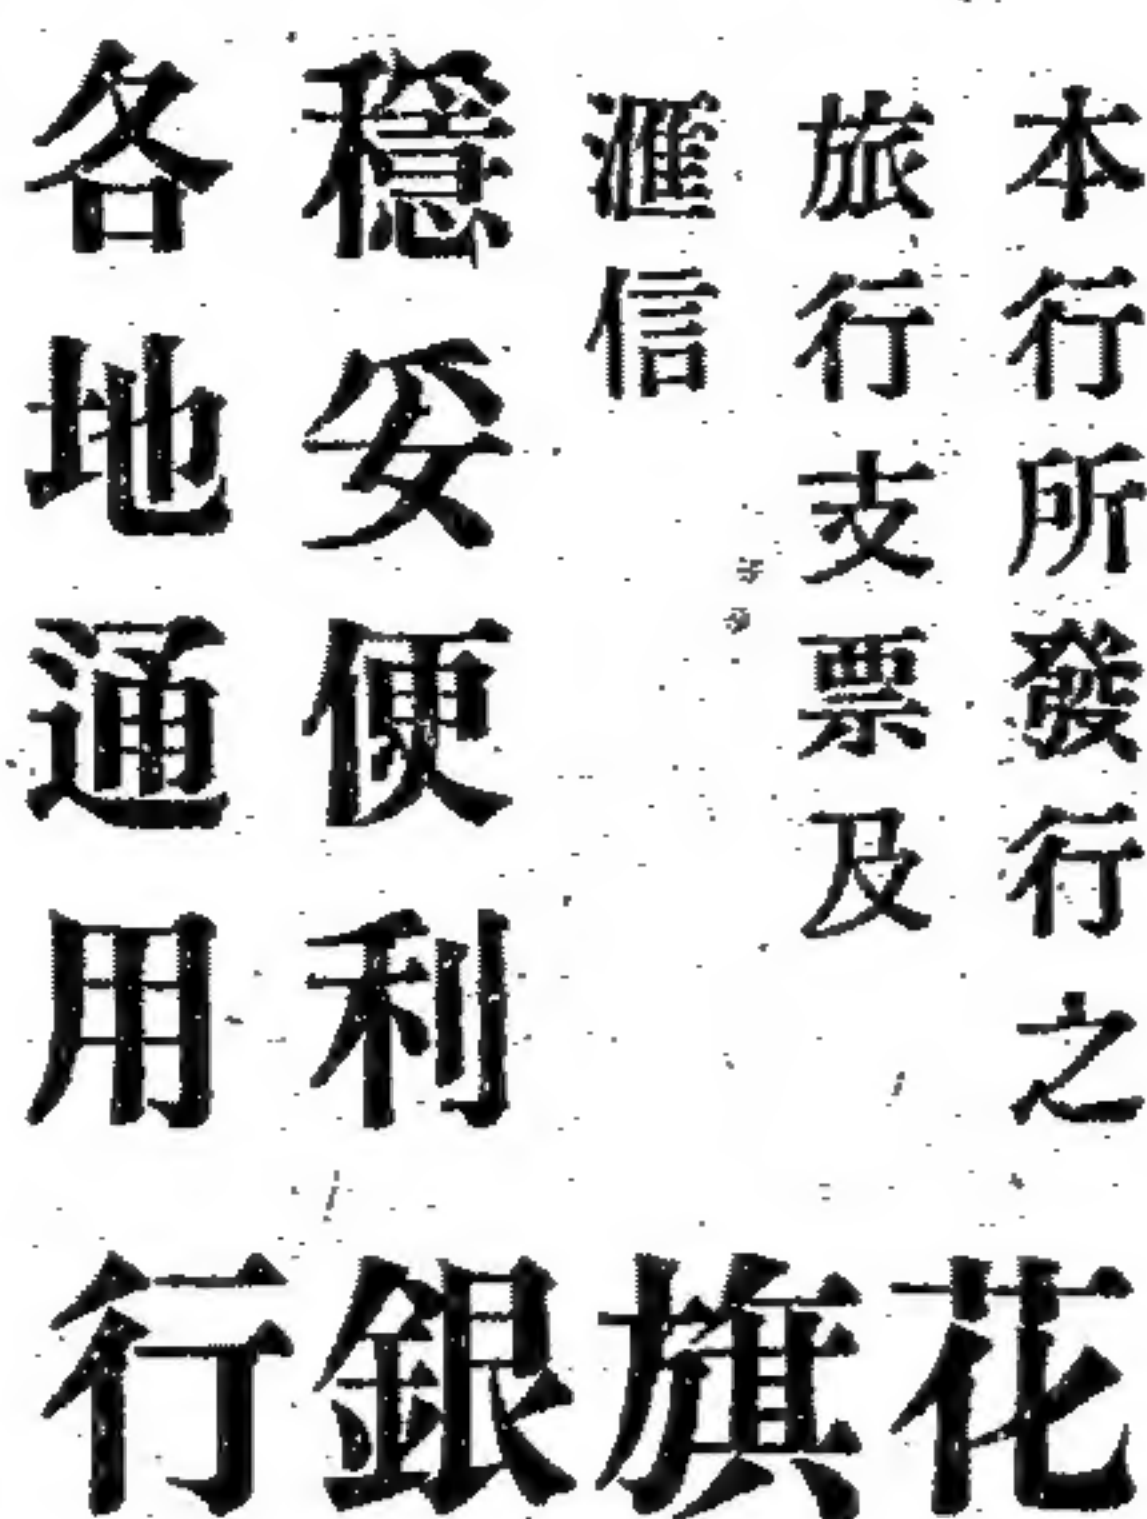 本行所發行之
旅行支票及
滙信
穩妥便利
各地通用
花旗銀行